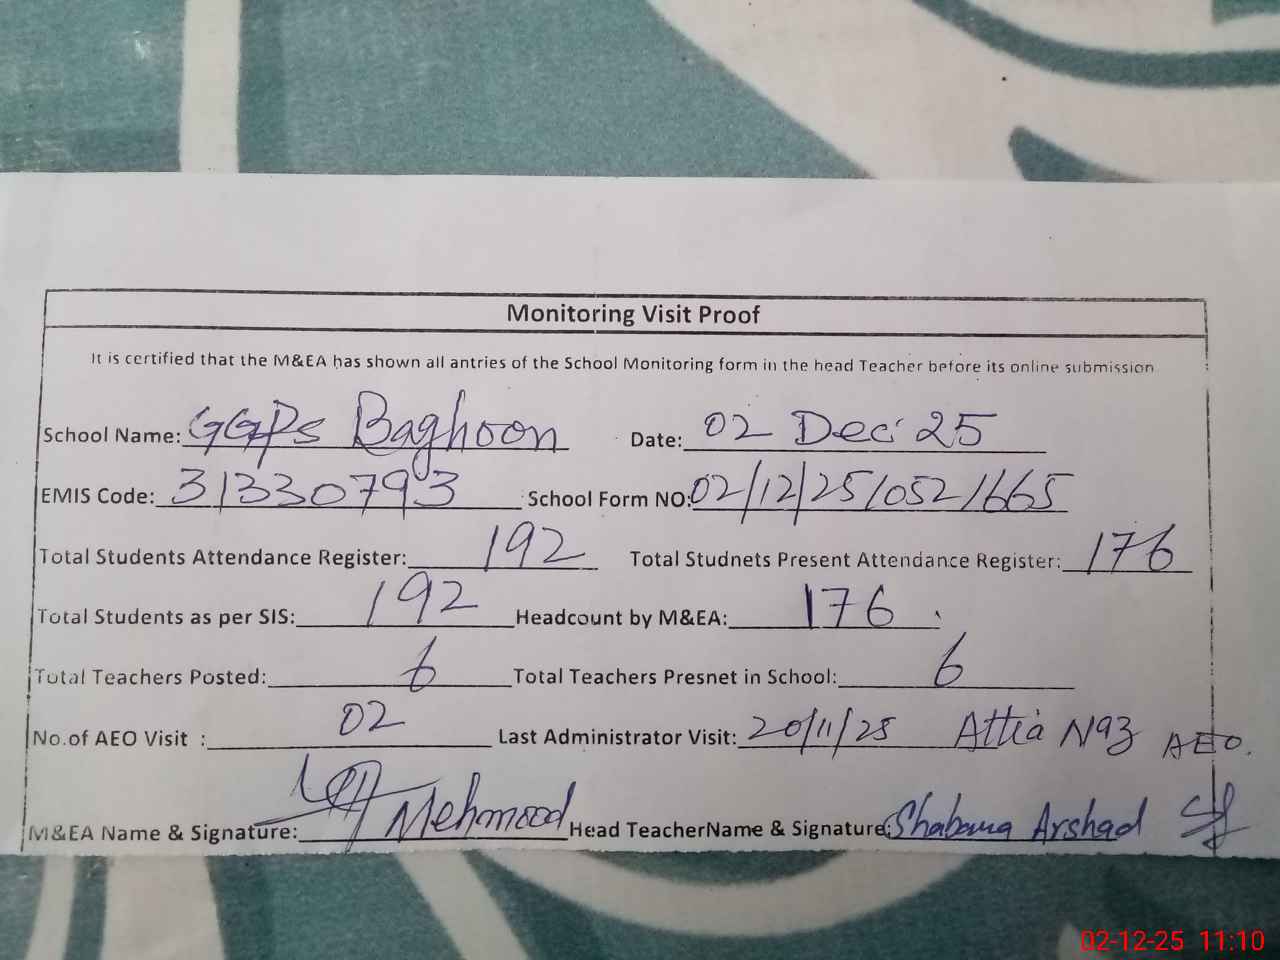 Monitoring Visit Proof
It is certified that the M&EA has shown all antries of the School Monitoring form in the head Teacher before its online submission
School Name: GGPS Baghoon Date: 02 Dec 25
EMIS Code: 31330793 School Form NO: 02/12/25/052/665
Total Students Attendance Register: 192 Total Studnets Present Attendance Register: 176
Total Students as per SIS: 192 Headcount by M&EA: 176
Total Teachers Posted: 6 Total Teachers Presnet in School: 6
No.of AEO Visit : 02 Last Administrator Visit: 20/11/25 Attia Naz AEO.
M&EA Name & Signature: Mehmood Head TeacherName & Signature: Shabana Arshad
02-12-25 11:10